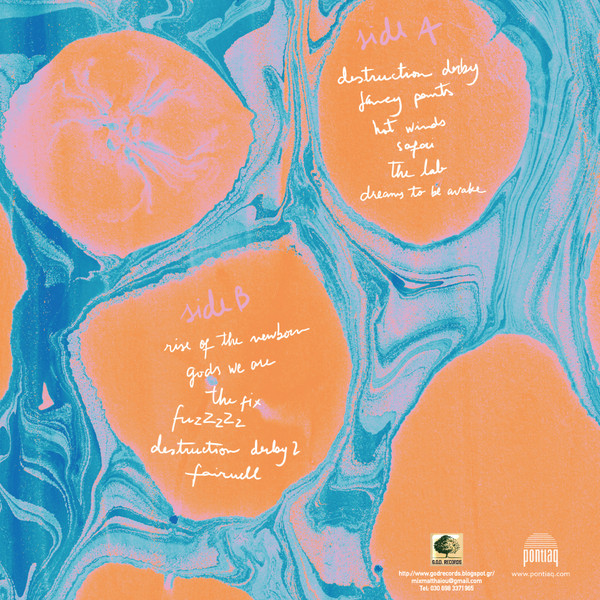 side A
destruction derby
fancy pants
hot winds
safou
the lab
dreams to be awake
side B
rise of the newborn
gods we are
the fix
fuzZzZz
destruction derby 2
fairwell
G.O.D. RECORDS
http://www.godrecords.blogspot.gr/
mixmatthaiou@gmail.com
pontiaq
www.pontiaq.com